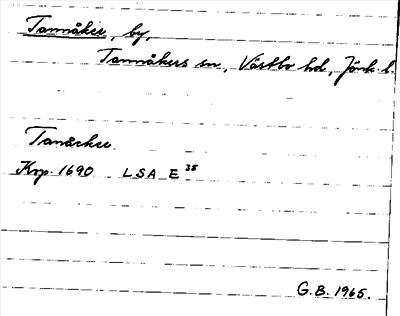 Tannåker, by,
Tannåkers sn, Västbo hd, Jönk. l.
Tanåcker
Krp. 1690 LSA E 35
G.B. 1965.